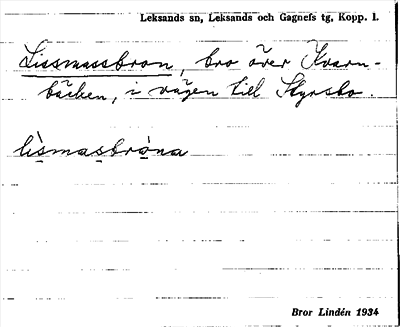 Leksands sn, Leksands och Gagnefs tg, Kopp. l.
Lissmassbron, bro över Kvarn-
bäcken, i vägen till Styrsbo.
lìsmasbrǫ̀na
Bror Lindén 1934